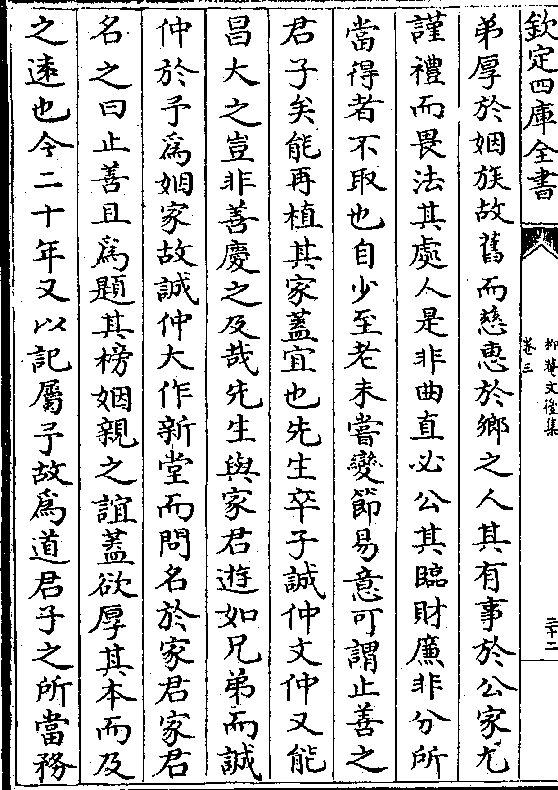 欽定四庫全書
抑菴文後集
卷三
三十二
弟厚於姻族故舊而慈惠於鄉之人其有事於公家尤
謹禮而畏法其處人是非曲直必公其臨財廉非分所
當得者不取也自少至老未嘗變節易意可謂止善之
君子矣能再植其家蓋宜也先生卒子誠仲文仲又能
昌大之豈非善慶之及哉先生與家君遊如兄弟而誠
仲於予為姻家故誠仲大作新堂而問名於家君家君
名之曰止善且為題其榜姻親之誼蓋欲厚其本而及
之遠也今二十年又以記屬予故為道君子之所當務